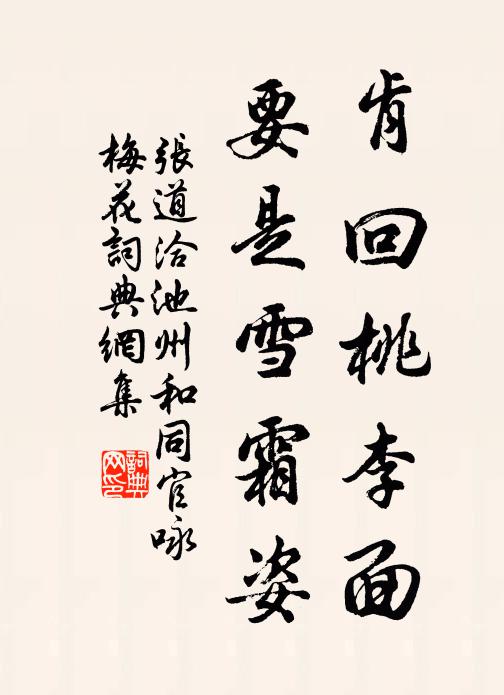 肯回桃李面
要是雪霜姿
張道洽池州和同官咏
梅花詞典網集
詞典
网印